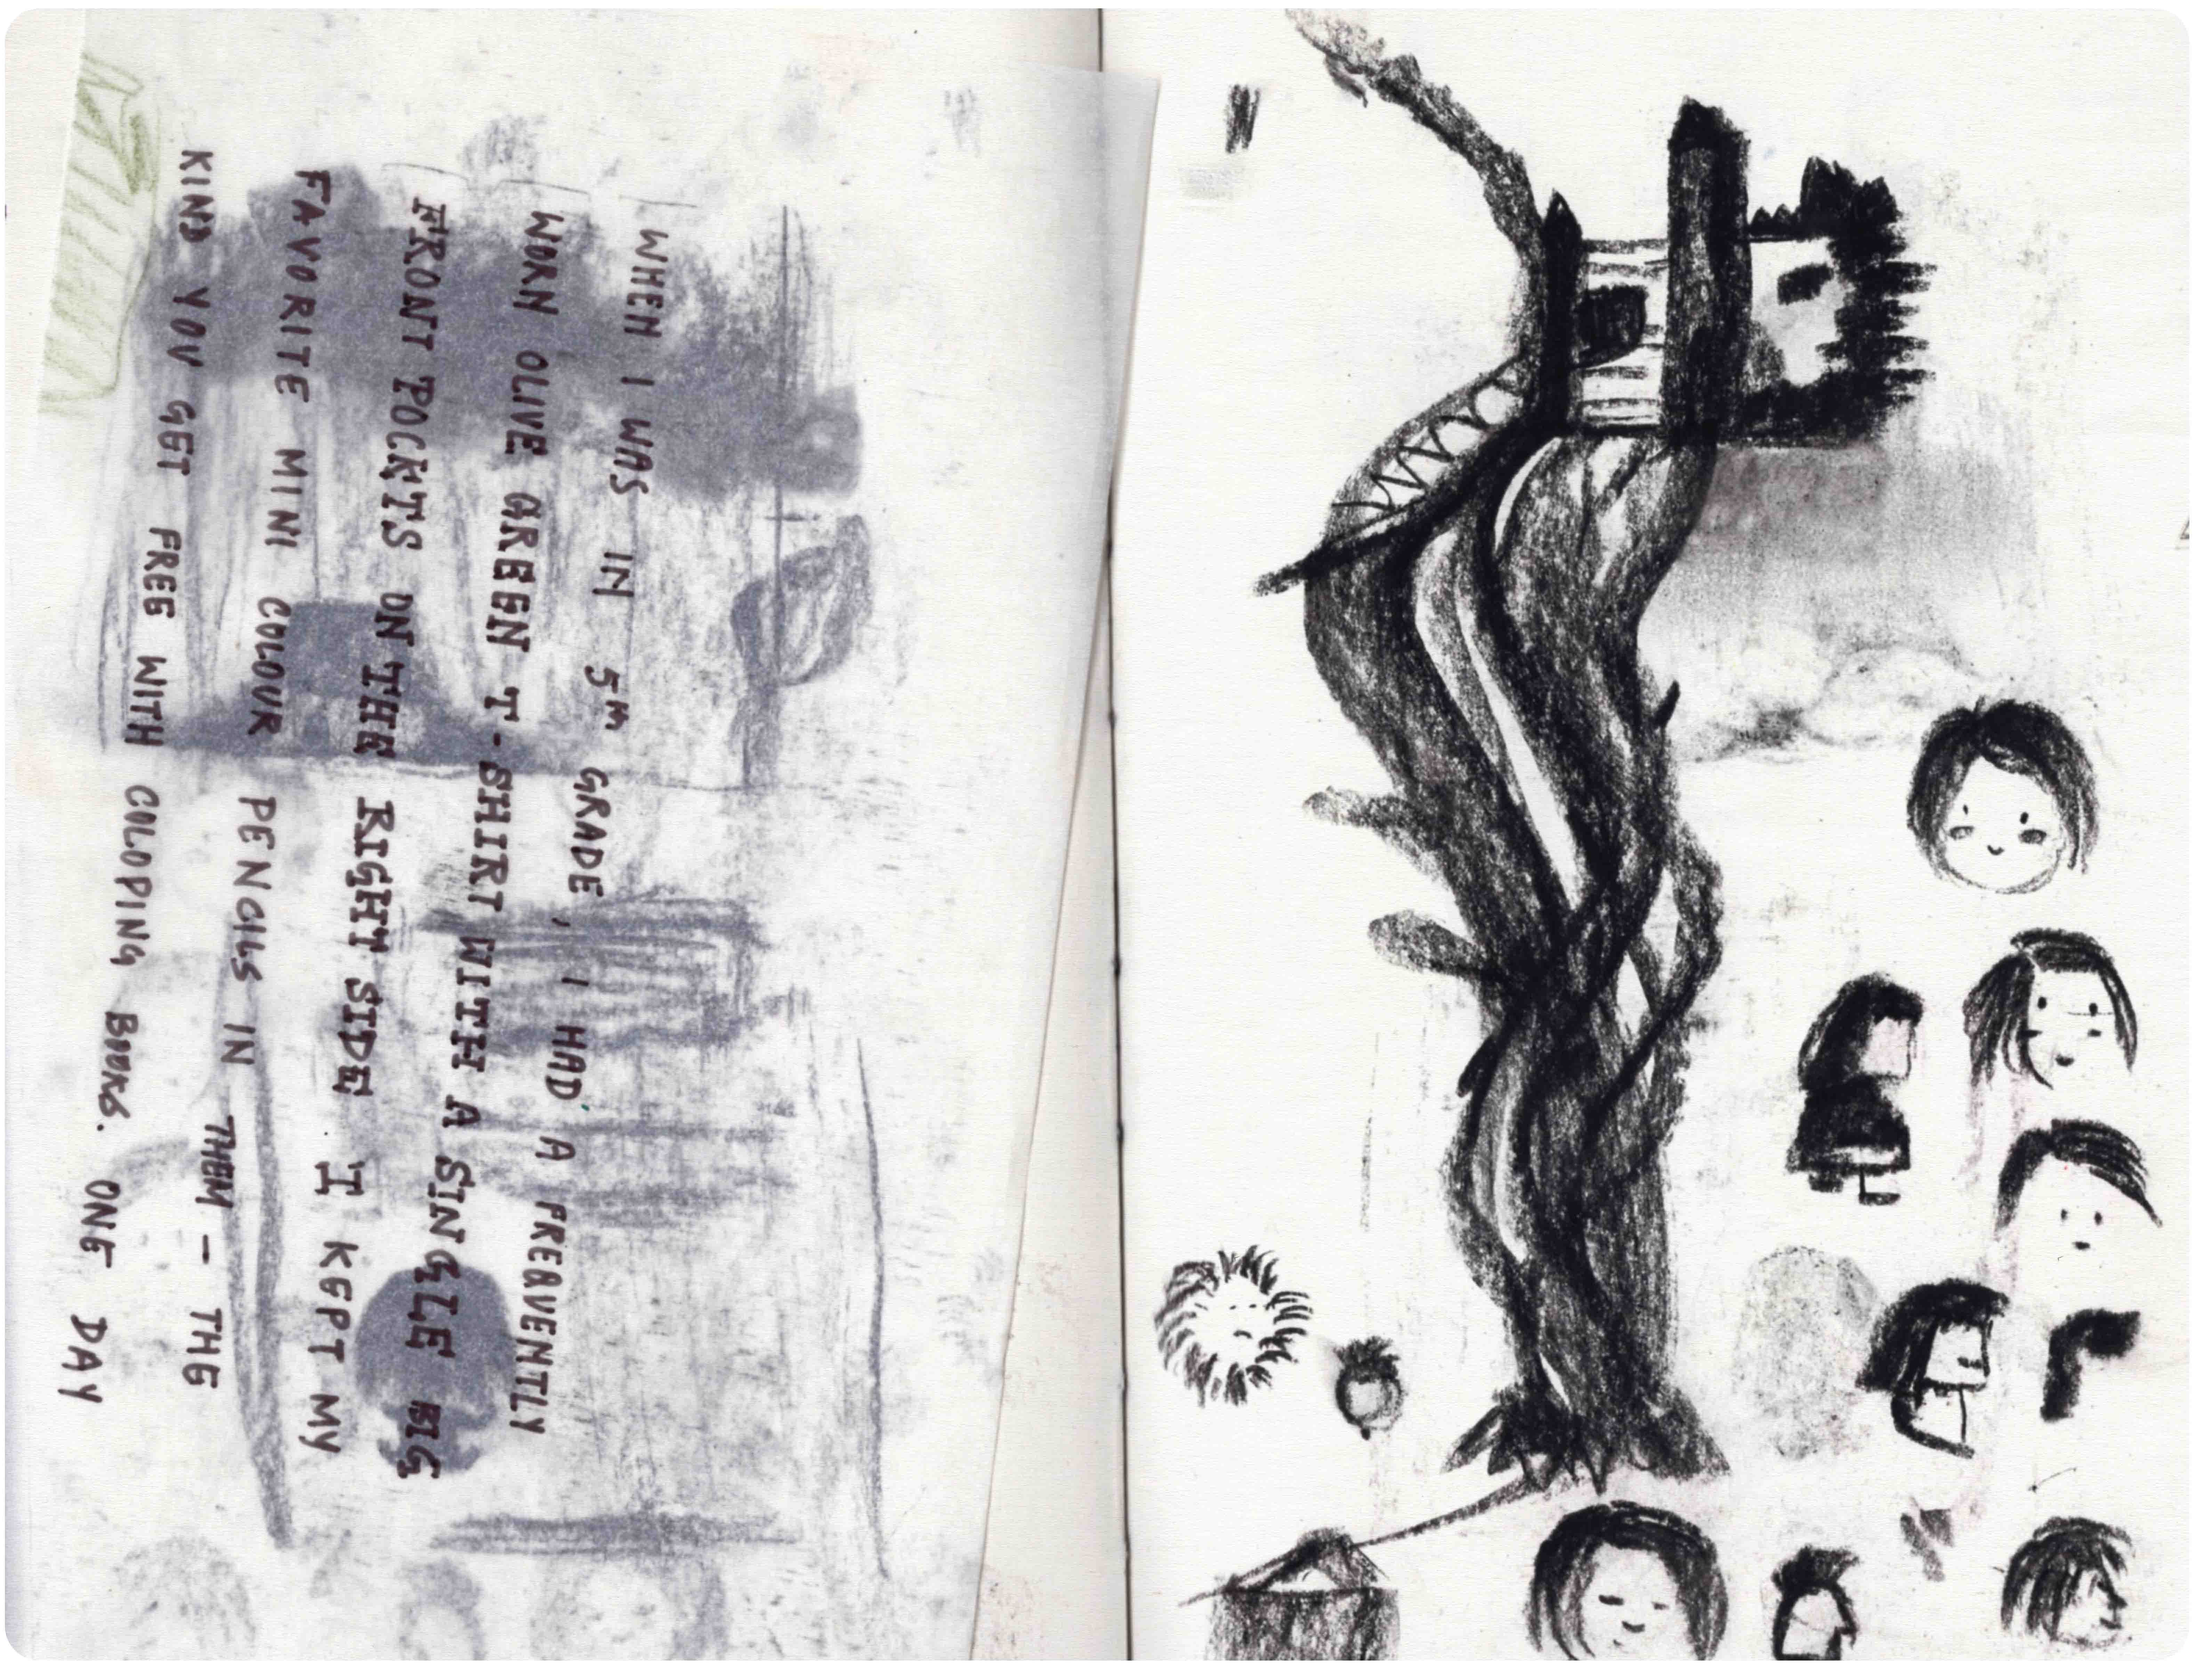 WHEN I WAS IN 5TH GRADE, I HAD A FREQUENTLY
WORN OLIVE GREEN T-SHIRT WITH A SINGLE BIG
FRONT POCKETS ON THE RIGHT SIDE I KEPT MY
FAVORITE MINI COLOUR PENCILS IN THEM - THE
KIND YOU GET FREE WITH COLOPING BOOKS. ONE DAY